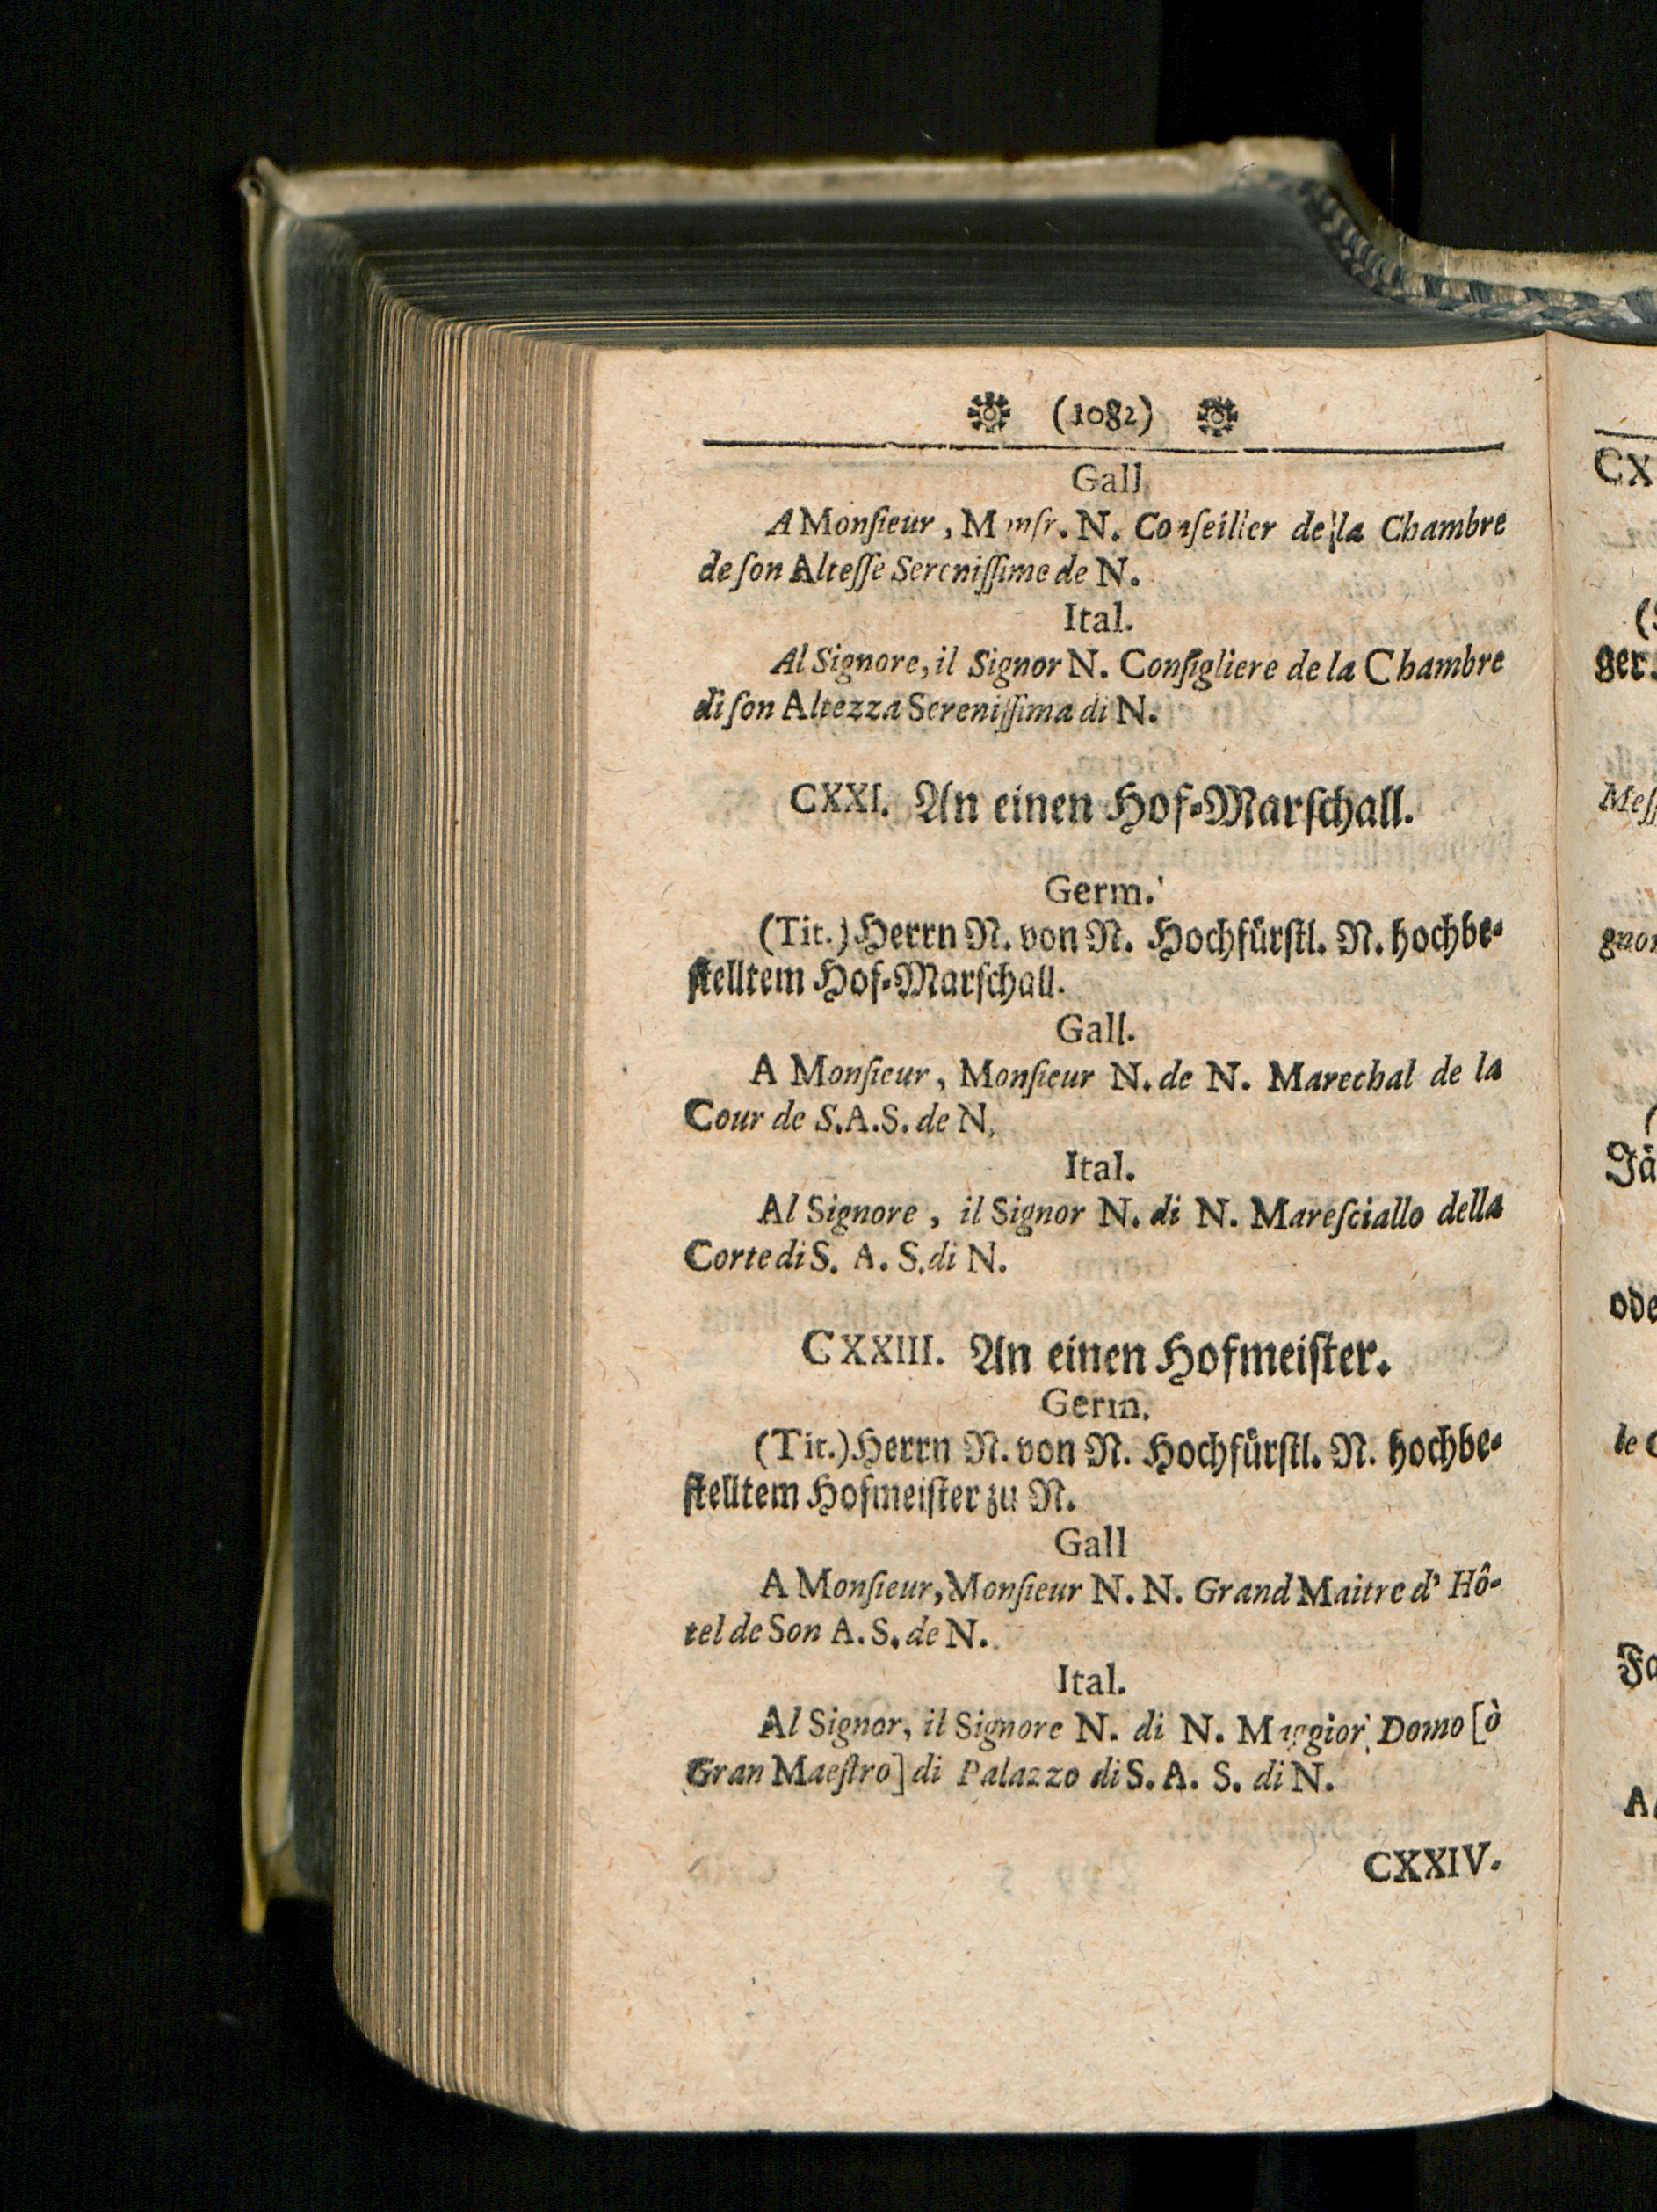 (1082)
Gall
A Monſieur, Monſr. N. Conſeiller de la Chambre
de ſon Alteſſe Sereniſſime de N.
Ital.
Al Signore, il Signor N. Conſigliere de la Chambre
di ſon Altezza Sereniſſima di N.
CXXI. An einen Hof-Marſchall.
Germ.
(Tit.) Herrn N. von N. Hochfürſtl. N. hochbe-
ſtelltem Hof-Marſchall.
Gall.
A Monſieur, Monſieur N. de N. Marechal de la
Cour de S.A.S. de N,
Ital.
Al Signore, il Signor N. di N. Mareſciallo della
Corte di S. A. S. di N.
CXXIII. An einen Hofmeiſter.
Germ.
(Tit.) Herrn N. von N. Hochfürſtl. N. hochbe-
ſtelltem Hofmeiſter zu N.
Gall
A Monſieur, Monſieur N. N. Grand Maitre d' Hô-
tel de Son A. S. de N.
Ital.
Al Signor, il Signore N. di N. Maggior Domo [ò
Gran Maeſtro] di Palazzo di S. A. S. di N.
CXXIV.
CX
ger.
gnor
Jä
ode
le
Fa